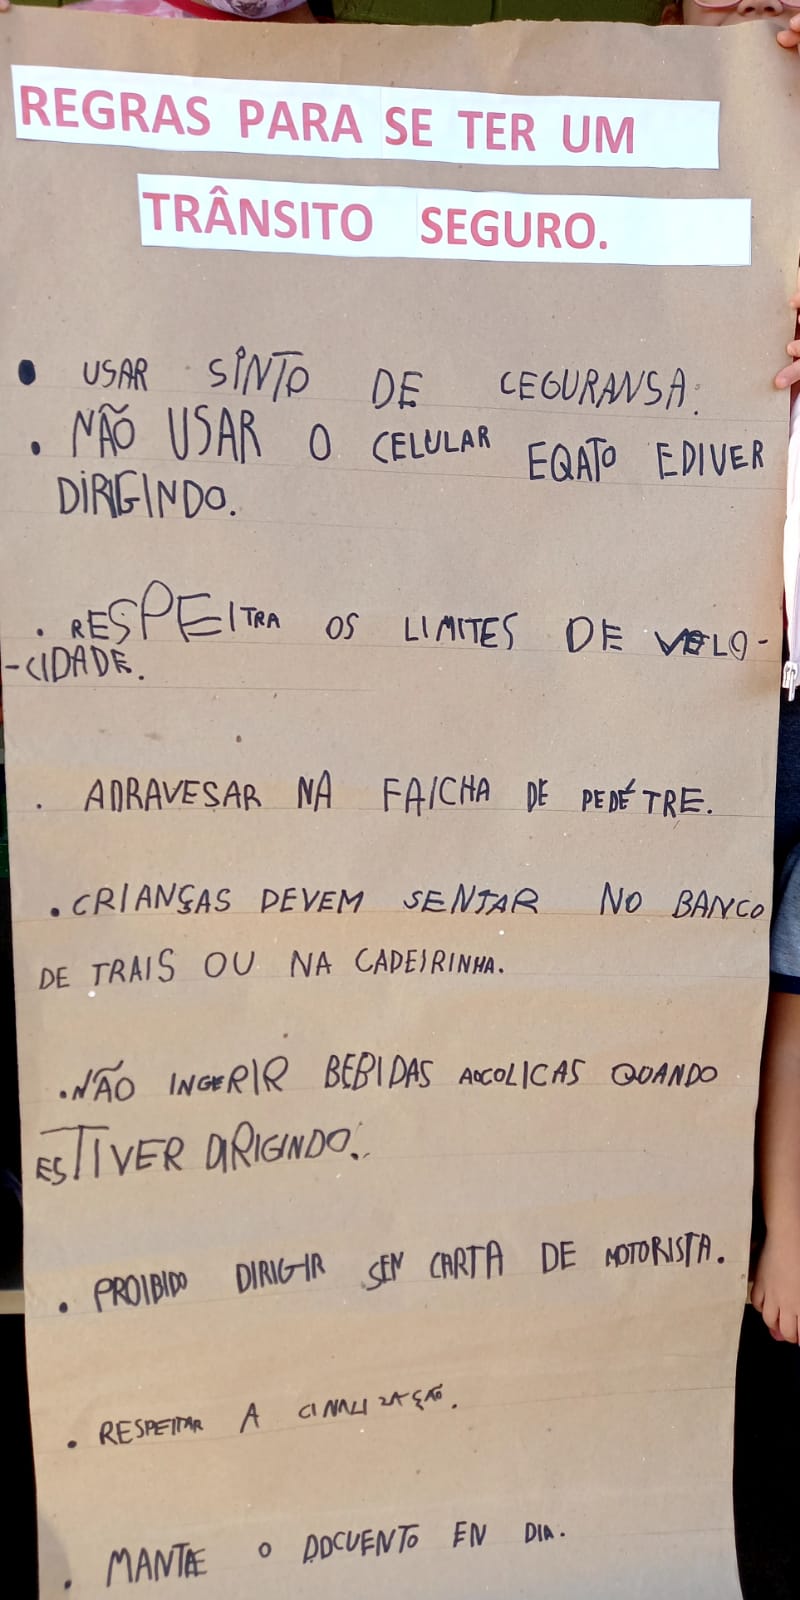 REGRAS PARA SE TER UM
TRÂNSITO SEGURO.
• USAR SINTO DE CEGURANSA.
• NÃO USAR O CELULAR EQATO EDIVER
DIRIGINDO.
• RESPEITRA OS LIMITES DE VELO-
-CIDADE.
• ADRAVESAR NA FAICHA DE PEDÉTRE.
• CRIANÇAS DEVEM SENTAR NO BANCO
DE TRAIS OU NA CADEIRINHA.
• NÃO INGERIR BEBIDAS AOCOLICAS QUANDO
ESTIVER DIRIGINDO.
• PROIBIDO DIRIGIR SEN CARTA DE MOTORISTA.
• RESPEITAR A CINALIZAÇÃO.
• MANTÆ O DOCUENTO EN DIA.